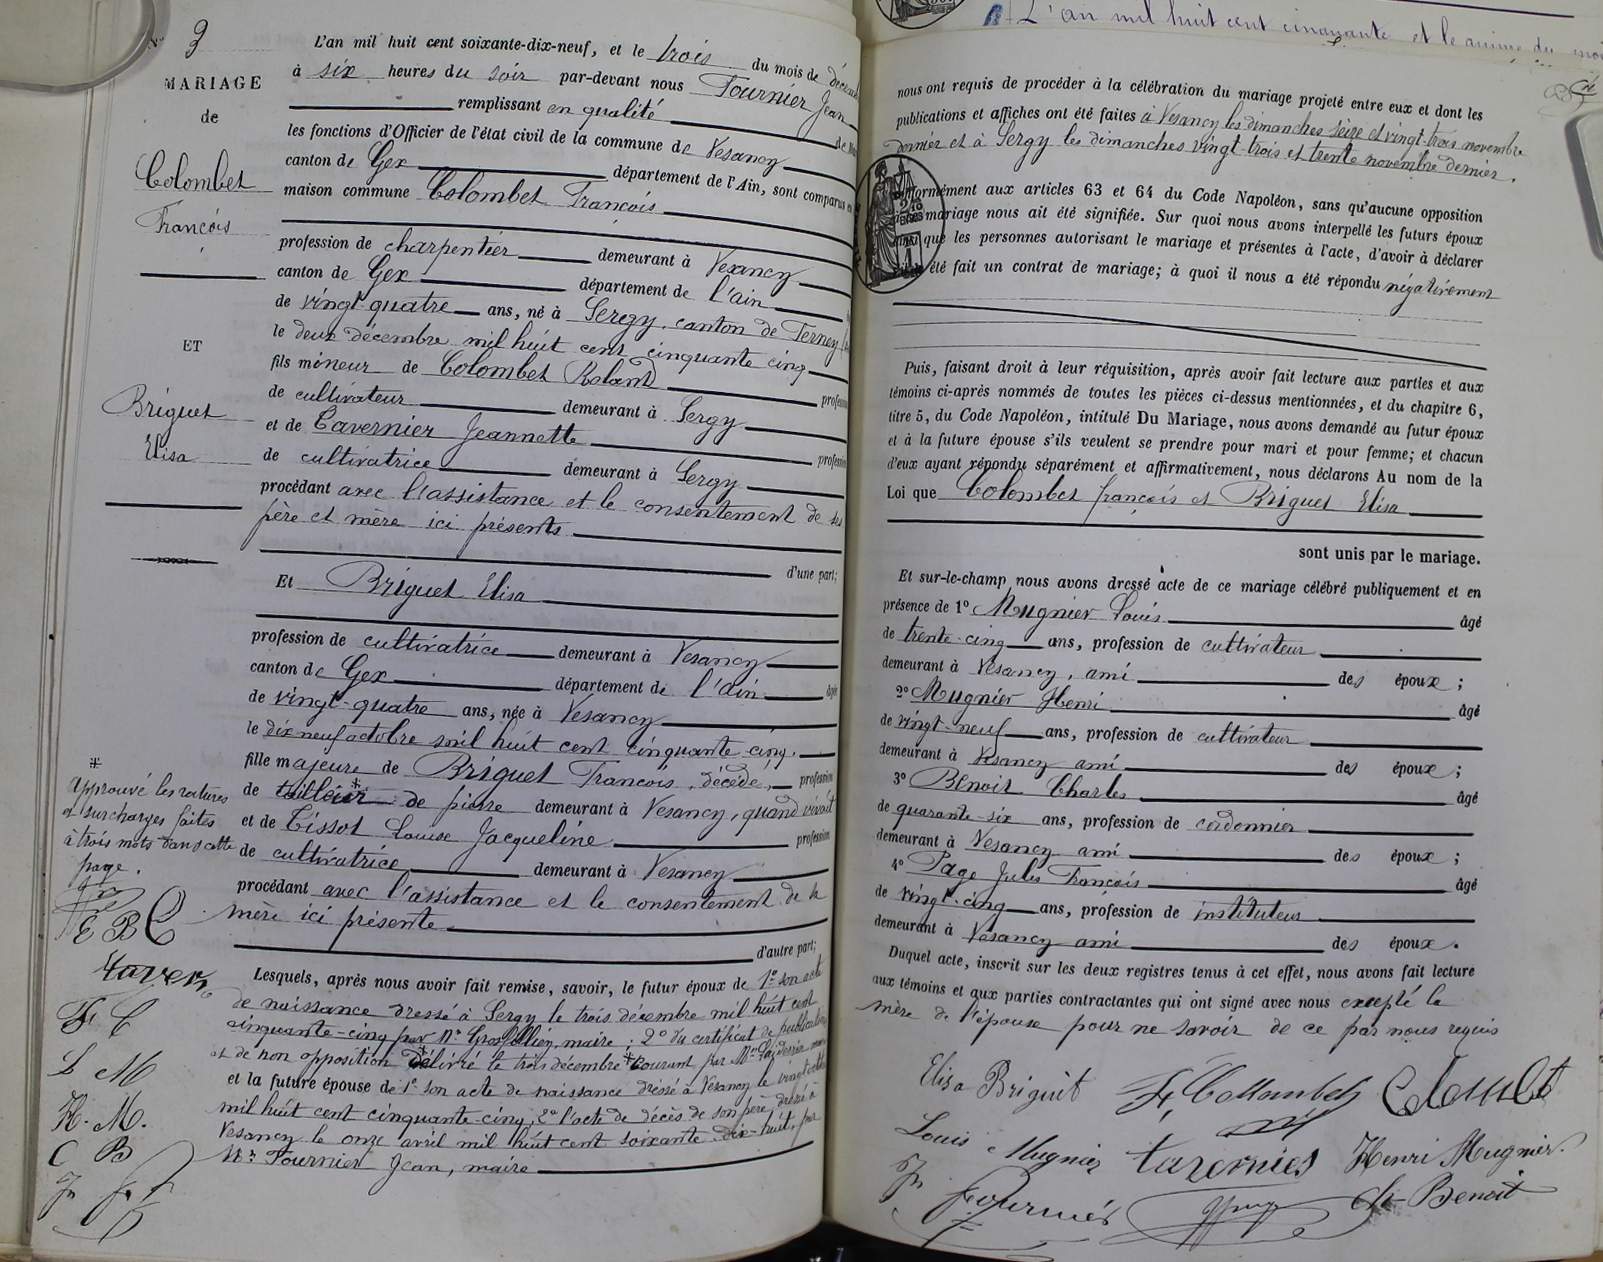 N° 3
MARIAGE
de
Colombet
François
ET
Briguet
Elisa
L'an mil huit cent soixante-dix-neuf, et le trois du mois de décem
à six heures du soir par-devant nous Fournier Jean
remplissant en qualité de
les fonctions d'Officier de l'état civil de la commune de Vesancy
canton de Gex département de l'Ain, sont comparus en
maison commune Colombet François
profession de charpentier demeurant à Vesancy
canton de Gex département de l'ain
de vingt-quatre ans, né à Sergy, canton de Ferney
le deux décembre mil huit cent cinquante cinq
fils mineur de Colombet Roland profession
de cultivateur demeurant à Sergy
et de Tavernier Jeannette profession
de cultivatrice demeurant à Sergy
procédant avec l'assistance et le consentement de ses
père et mère ici présents
d'une part;
Et Briguet Elisa
profession de cultivatrice demeurant à Vesancy
canton de Gex département de l'ain âgée
de vingt-quatre ans, née à Vesancy
le dix neuf octobre mil huit cent cinquante-cinq.
fille majeure de Briguet François, décédé, profession
de tailleur* de pierre demeurant à Vesancy, quand vivait
et de Tissot Louise Jacqueline profession
de cultivatrice demeurant à Vesancy
procédant avec l'assistance et le consentement de la
mère ici présente
d'autre part;
Lesquels, après nous avoir fait remise, savoir, le futur époux de 1° son acte
de naissance dressé à Sergy le trois décembre mil huit cent
cinquante-cinq par Mr Grosfillien, maire; 2° du certificat de publication
et de non opposition délivré le trois décembre *courant par Mr
et la future épouse de 1° son acte de naissance dressé à Vesancy le vingt octobre
mil huit cent cinquante-cinq, 2° l'acte de décès de son père dressé à
Vesancy le onze avril mil huit cent soixante-dix-huit, par
Mr Fournier Jean, maire
*
Approuvé les ratures
et surcharges faites
à trois mots dans cette
page.
E B C
taver
F C
L M
H. M.
C B
L'an mil huit cent cinquante et le
nous ont requis de procéder à la célébration du mariage projeté entre eux et dont les
publications et affiches ont été faites à Vesancy les dimanches seize et vingt-trois novembre
dernier et à Sergy les dimanches vingt-trois et trente novembre dernier.
Conformément aux articles 63 et 64 du Code Napoléon, sans qu'aucune opposition
mariage nous ait été signifiée. Sur quoi nous avons interpellé les futurs époux
que les personnes autorisant le mariage et présentes à l'acte, d'avoir à déclarer
été fait un contrat de mariage; à quoi il nous a été répondu négativement
Puis, faisant droit à leur réquisition, après avoir fait lecture aux parties et aux
témoins ci-après nommés de toutes les pièces ci-dessus mentionnées, et du chapitre 6,
titre 5, du Code Napoléon, intitulé Du Mariage, nous avons demandé au futur époux
et à la future épouse s'ils veulent se prendre pour mari et pour femme; et chacun
d'eux ayant répondu séparément et affirmativement, nous déclarons Au nom de la
Loi que Colombet françois et Briguet Elisa
sont unis par le mariage.
Et sur-le-champ nous avons dressé acte de ce mariage célébré publiquement et en
présence de 1° Mugnier Louis âgé
de trente-cinq ans, profession de cultivateur
demeurant à Vesancy, ami des époux;
2° Mugnier Henri âgé
de vingt-neuf ans, profession de cultivateur
demeurant à Vesancy ami des époux;
3° Benoit Charles âgé
de quarante-six ans, profession de cordonnier
demeurant à Vesancy ami des époux;
4° Page Jules François âgé
de vingt-cinq ans, profession de instituteur
demeurant à Vesancy ami des époux.
Duquel acte, inscrit sur les deux registres tenus à cet effet, nous avons fait lecture
aux témoins et aux parties contractantes qui ont signé avec nous excepté la
mère de l'épouse pour ne savoir de ce par nous requis
Elisa Briguet F. Collombet
Louis Mugnier tavernies Henri Mugnier.
Jn Fournier Ch Benoit